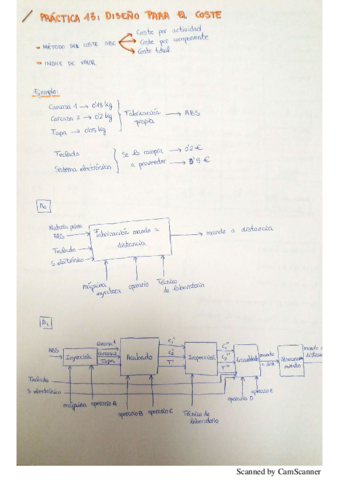 PRÁCTICA 13: DISEÑO PARA EL COSTE
- MÉTODO DEL COSTE ABC
Coste por actividad
Coste por componente
Coste total
- ÍNDICE DE VALOR
Ejemplo:
Carcasa 1 → 0'15 kg
Carcasa 2 → 0'2 kg
Tapa → 0'05 kg
Fabricación propia → ABS
Teclado
Sistema electrónico
Se lo compra a proveedor
→ 0'2 €
A0
Materia prima
ABS
Teclado
S. eléctrónico
Fabricación mando a distancia
→ mando a distancia
máquina inyectora
operario
Técnico de laboratorio
A1
ABS
Inyección
Carcasa 1
Carcasa 2
Tapa
Acabado
C1'
C2'
T'
Inspección
C1''
C2''
T''
Ensamblado
mando
mando a distancia
Teclado
S. electrónico
máquina
operario A
operario B
operario C
Técnico de laboratorio
operario D
Scanned by CamScanner